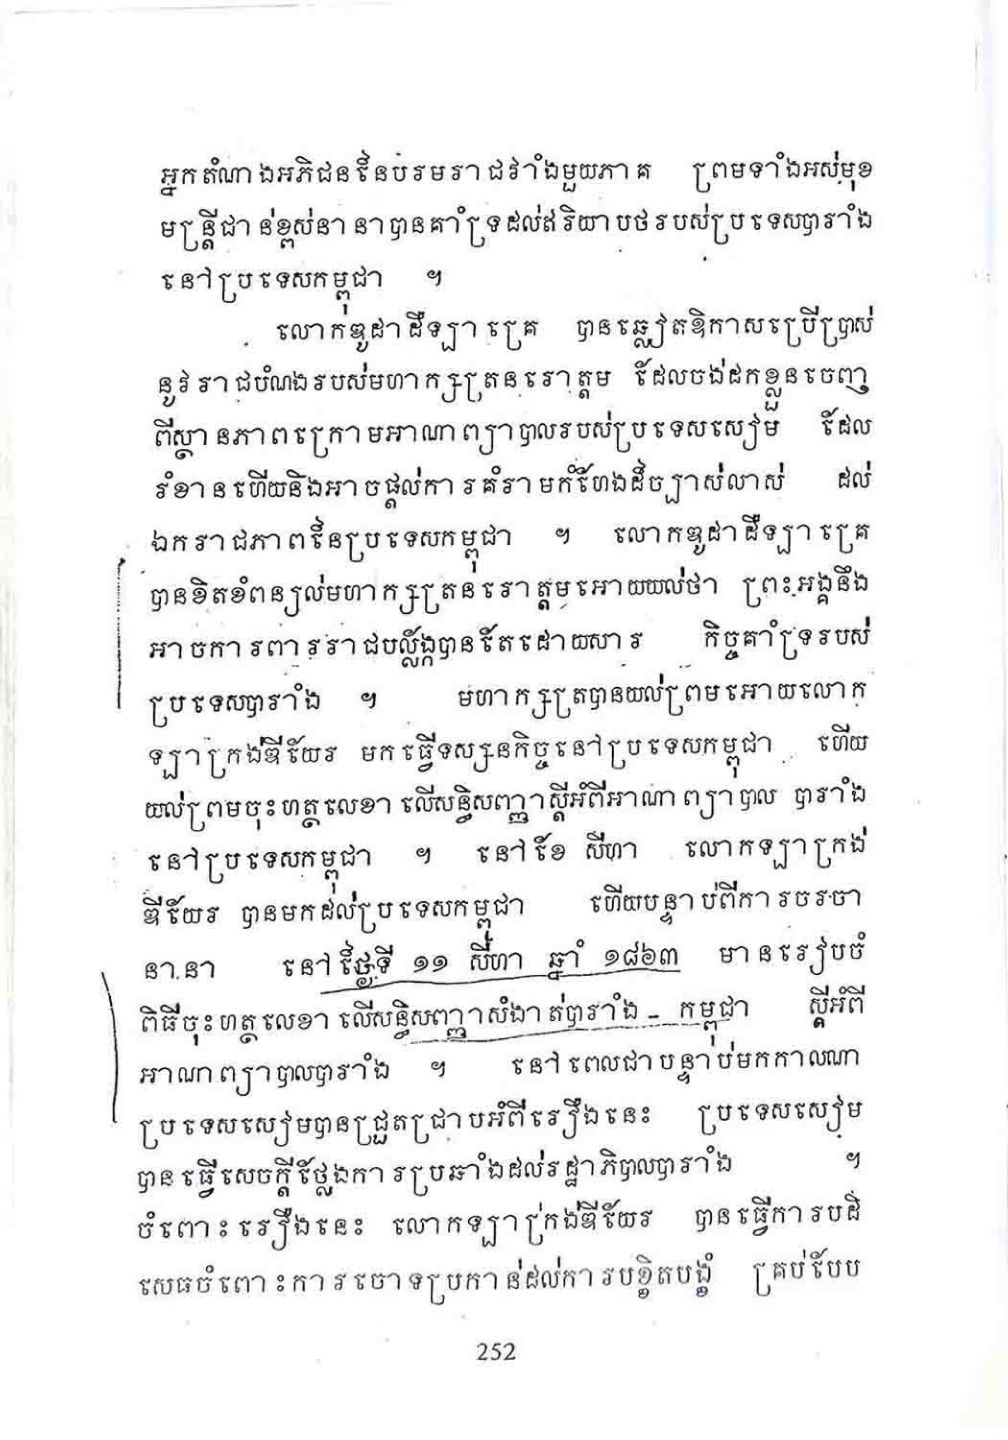 អ្នកតំណាងអភិជននៃបរមរាជវាំងមួយភាគ ព្រមទាំងអស់មុខ
មន្ត្រីជាន់ខ្ពស់នានាបានគាំទ្រដល់ឥរិយាបថរបស់ប្រទេសបារាំង
នៅប្រទេសកម្ពុជា ។
លោកឌូដាដឺឡាគ្រេ បានឆ្លៀតឱកាសប្រើប្រាស់
នូវរាជបំណងរបស់មហាក្សត្រនរោត្តម ដែលចង់ដកខ្លួនចេញ
ពីស្ថានភាពក្រោមអាណាព្យាបាលរបស់ប្រទេសសៀម ដែល
រំខានហើយនិងអាចផ្ដល់ការគំរាមកំហែងដ៏ច្បាស់លាស់ ដល់
ឯករាជភាពនៃប្រទេសកម្ពុជា ។ លោកឌូដាដឺឡាគ្រេ
បានខិតខំពន្យល់មហាក្សត្រនរោត្តមអោយយល់ថា ព្រះអង្គនឹង
អាចការពាររាជបល្ល័ង្កបានតែដោយសារ កិច្ចគាំទ្ររបស់
ប្រទេសបារាំង ។ មហាក្សត្របានយល់ព្រមអោយលោក
ឡាក្រង់ឌីយែរ មកធ្វើទស្សនកិច្ចនៅប្រទេសកម្ពុជា ហើយ
យល់ព្រមចុះហត្ថលេខាលើសន្ធិសញ្ញាស្ដីអំពីអាណាព្យាបាល បារាំង
នៅប្រទេសកម្ពុជា ។ នៅខែ សីហា លោកឡាក្រង់
ឌីយែរ បានមកដល់ប្រទេសកម្ពុជា ហើយបន្ទាប់ពីការចរចា
នានា នៅថ្ងៃទី ១១ សីហា ឆ្នាំ ១៨៦៣ មានរៀបចំ
ពិធីចុះហត្ថលេខាលើសន្ធិសញ្ញាសំងាត់បារាំង - កម្ពុជា ស្ដីអំពី
អាណាព្យាបាលបារាំង ។ នៅពេលជាបន្ទាប់មកកាលណា
ប្រទេសសៀមបានជ្រួតជ្រាបអំពីរឿងនេះ ប្រទេសសៀម
បានធ្វើសេចក្ដីថ្លែងការប្រឆាំងដល់រដ្ឋាភិបាលបារាំង ។
ចំពោះរឿងនេះ លោកឡាក្រង់ឌីយែរ បានធ្វើការបដិ
សេធចំពោះការចោទប្រកាន់ដល់ការបខ្ចិតបង្ខំ គ្រប់បែប
252